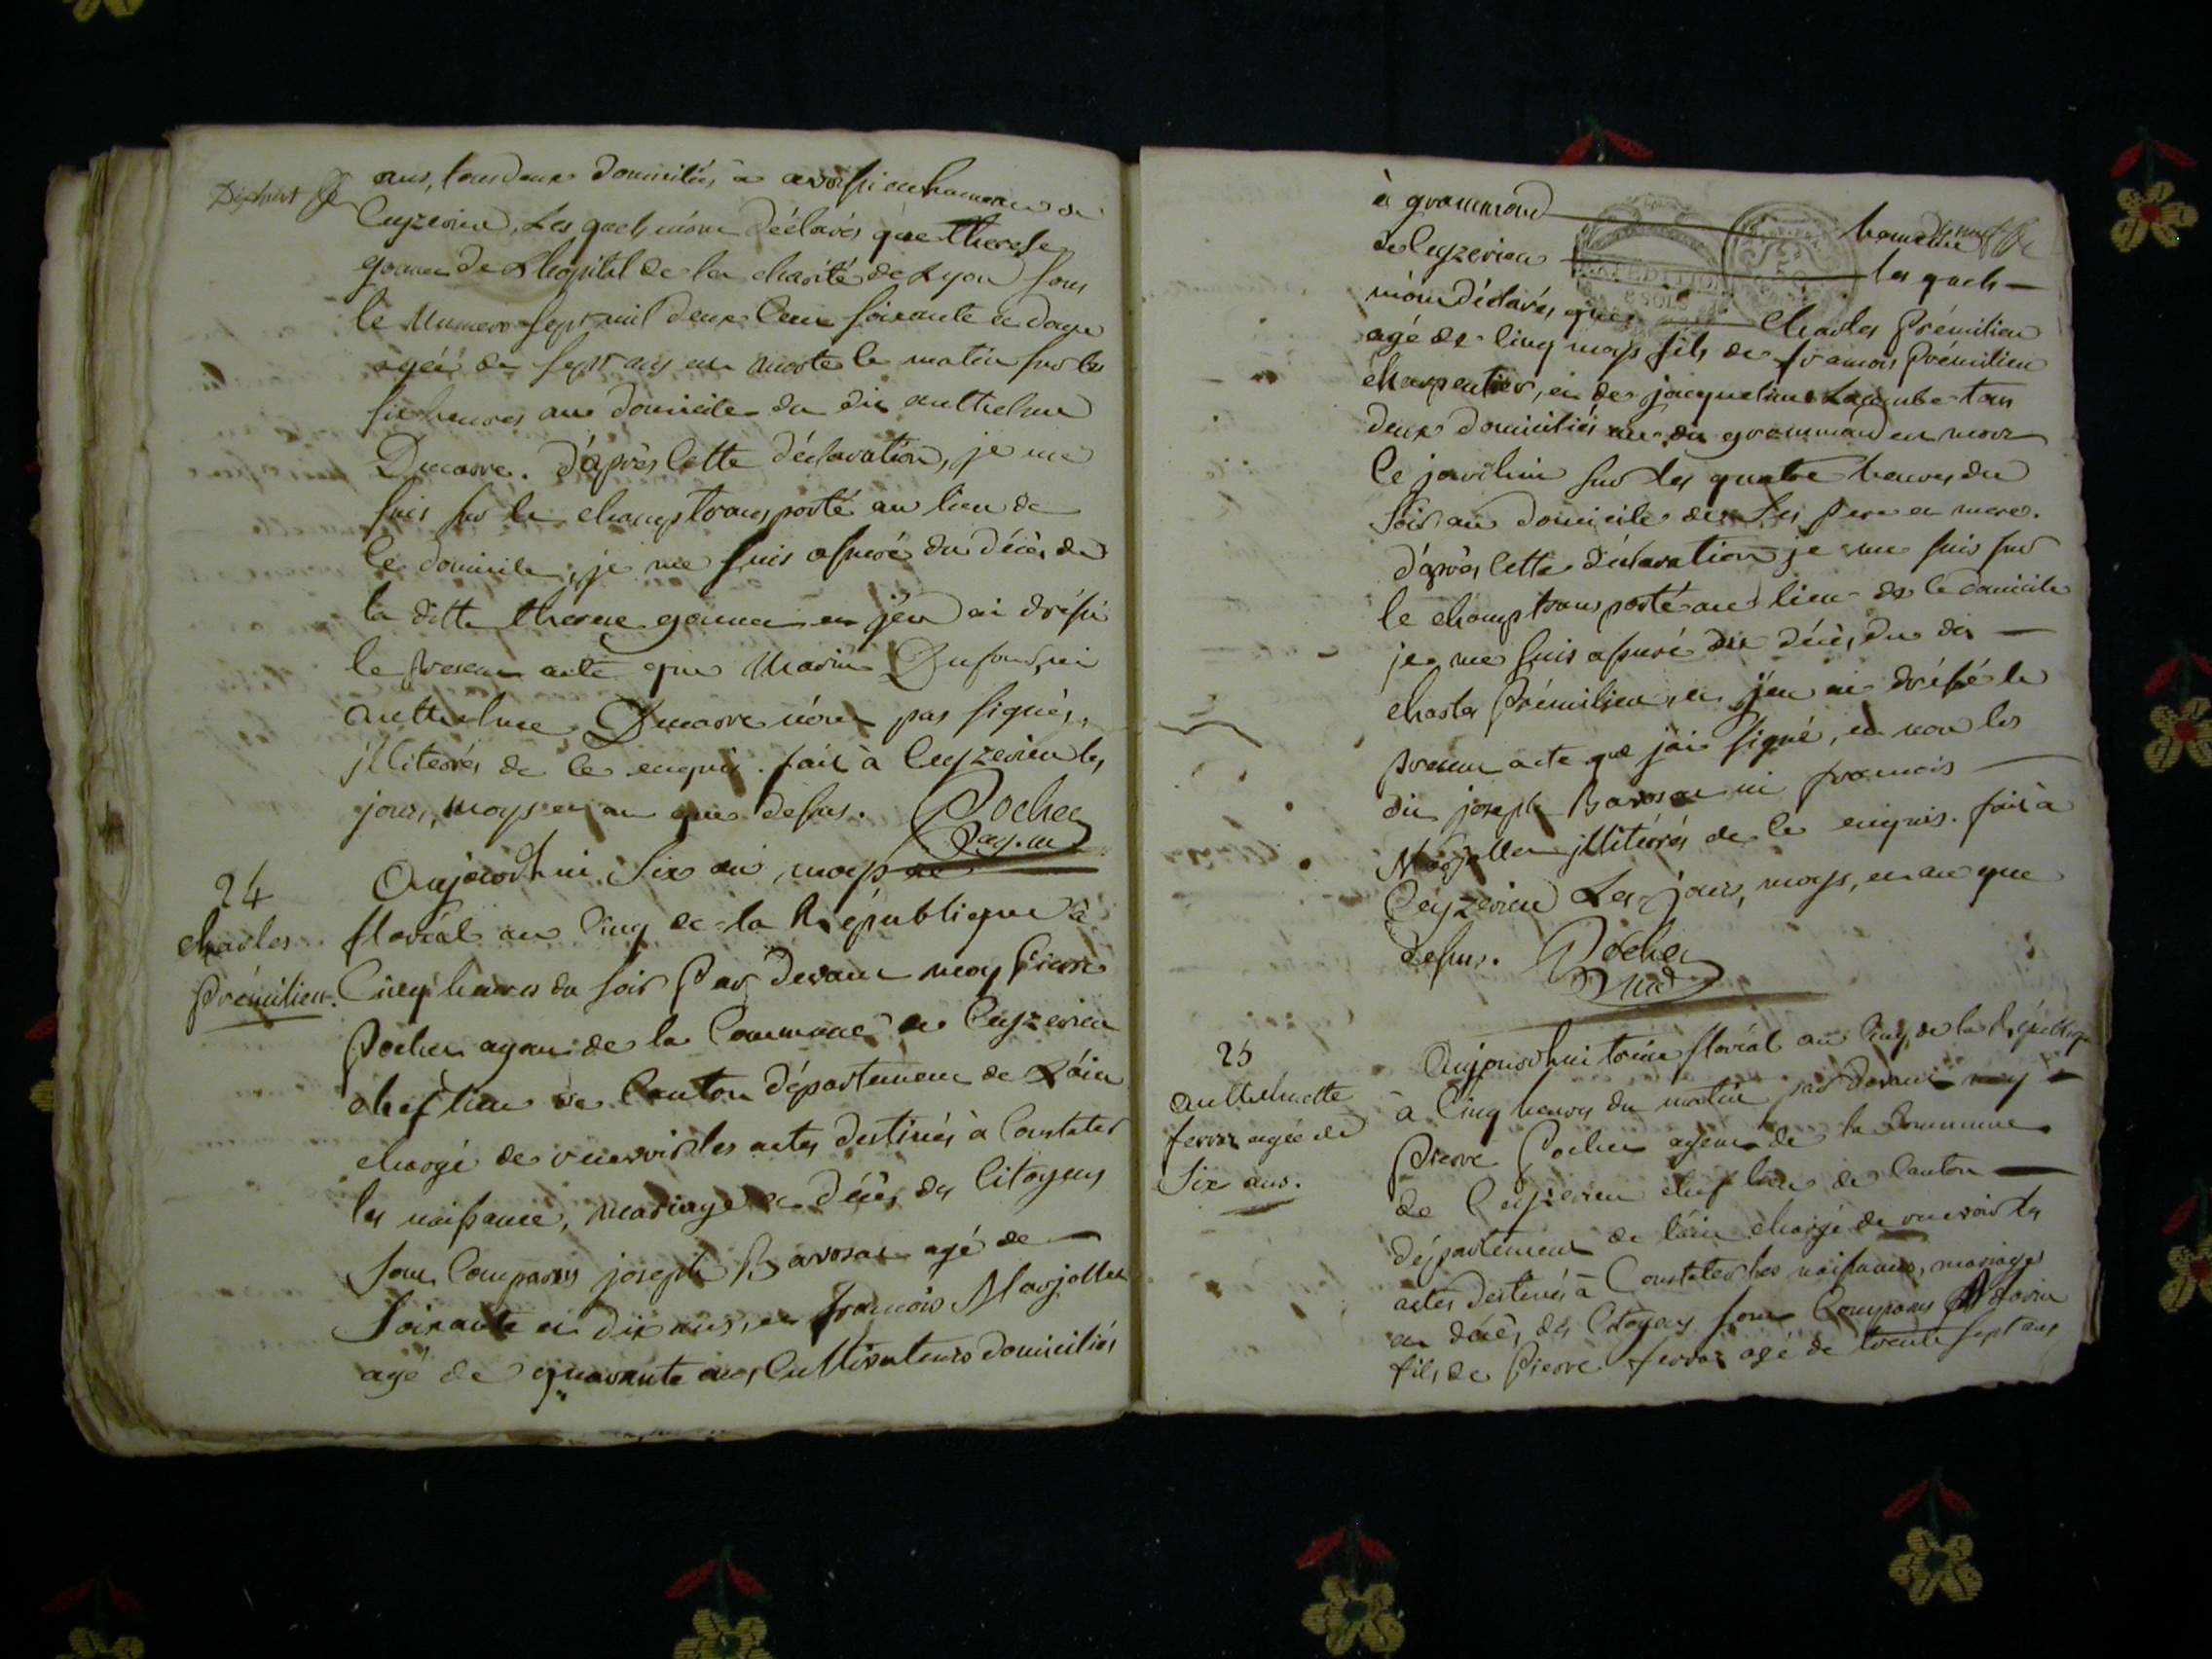 Dixhuit
ans, tous deux domiciliés à avoissieu hameau de
Ceyzerieu, Les quels m'ont déclarés que therese
de L'hopital de la charité de Lyon sous
le Numero sept mil deux Cent soixante et douze
agéé de sept ans est morte le matin sur les
six heures au domicile du dit anthelme
Ducarre. d'après cette déclaration, je me
suis sur le champ transporté au lieu de
ce domicile, je me suis assuré du décès de
la ditte therese et j'en ai dréssé
le present acte que Marin ni
anthelme Ducarre n'ont pas signés,
jllitérés de ce enquis. fait à Ceyzerieu les
jour, moys et an que dessus. Pochet
24
Charles
Prémilieu.
Aujourdhui Six du moys de
floréal an Cinq de la République à
Cinq heures du soir Par devant moy Pierre
Pochet agent de la Commune de Ceyzerieu
chef lieu de Canton département de Láin
chargé de recevoir les actes destinés à Constater
les naissance, mariage et décès des Citoyens
sont Comparus joseph Bavosat agé de
Soixante et dix ans, et francois Marjollet
agé de quarante ans, Cultivateurs domiciliés
à grammond hameau
de Ceyzerieu les quels
m'ont déclarés que Charles Prémilieu
agé de cinq moys fils de francois Prémilieu
charpentier, et de jacqueline Lacombe tous
deux domiciliés au dit grammond est mort
ce jourdhui sur les quatre heures du
soir au domicile de ses pere et mere.
d'après cette déclaration je me suis sur
le champ transporté au lieu de ce domicile
je me suis assuré du décès du dit
charles Prémilieu, et j'en ai dréssé le
present acte que j'ai signé, et non les
dit joseph Bavosat ni francois
Marjollet jllitérés de ce enquis. fait à
Ceyzerieu Les jour, moys, et an que
dessus. Pochet
25
anthelmette
ferroz agée de
Six ans.
Aujourdhui treize floréal an Cinq de la République
à Cinq heures du matin par devant moy
Pierre Pochet agent de la Commune
de Ceyzerieu chef lieu de Canton
département de láin chargé de recevoir les
actes destinés à Constater les naissances, mariages
et décès des Citoyens sont Comparus
fils de Pierre ferroz agé de trente sept ans